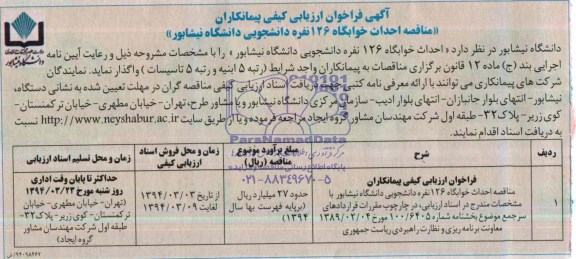 آگهی فراخوان ارزیابی کیفی پیمانکاران
«مناقصه احداث خوابگاه ۱۲۶ نفره دانشجویی دانشگاه نیشابور»
دانشگاه نیشابور در نظر دارد « احداث خوابگاه ۱۲۶ نفره دانشجویی دانشگاه نیشابور » را با مشخصات مشروحه ذیل و رعایت آیین نامه
اجرایی بند (ج) ماده ۱۲ قانون برگزاری مناقصات به پیمانکاران واجد شرایط (رتبه ۵ ابنیه و رتبه ۵ تاسیسات) واگذار نماید. نمایندگان
شرکت های پیمانکاری می توانند با ارائه معرفی نامه کتبی جهت دریافت اسناد ارزیابی کیفی مناقصه گران در مهلت تعیین شده به نشانی دستگاه،
نیشابور - انتهای بلوار جانبازان - انتهای بلوار ادیب- سازمان مرکزی دانشگاه نیشابور و یا مشاور طرح، تهران- خیابان مطهری- خیابان ترکمنستان-
کوی زریر- پلاک ۳۲- طبقه اول شرکت مهندسان مشاور گروه ایجاد مراجعه فرموده و یا از طریق سایت http://www.neyshabur.ac.ir نسبت
به دریافت اسناد اقدام نمایند.
ردیف
شرح
مبلغ برآورد موضوع مناقصه (ریال)
زمان و محل فروش اسناد ارزیابی کیفی
زمان و محل تسلیم اسناد ارزیابی
۱
فراخوان ارزیابی کیفی پیمانکاران
مناقصه احداث خوابگاه ۱۲۶ نفره دانشجویی دانشگاه نیشابور با
مشخصات مندرج در اسناد ارزیابی، در چارچوب مقررات قراردادهای
سرجمع موضوع بخشنامه شماره ۱۰۰/۶۴۰۵ مورخ ۱۳۸۹/۰۲/۰۴
معاونت برنامه ریزی و نظارت راهبردی ریاست جمهوری
حدود ۲۷ میلیارد ریال
(برپایه فهرست بها سال
۱۳۹۴)
از تاریخ ۱۳۹۴/۰۳/۰۳
لغایت ۱۳۹۴/۰۳/۰۹
حداکثر تا پایان وقت اداری
روز شنبه مورخ ۱۳۹۴/۰۳/۲۳
(تهران- خیابان مطهری- خیابان
ترکمنستان- کوی زریر- پلاک ۳۲-
طبقه اول شرکت مهندسان مشاور
گروه ایجاد)
ParaNamadData
۰۲۱-۸۸۳۴۹۶۷۰-۵